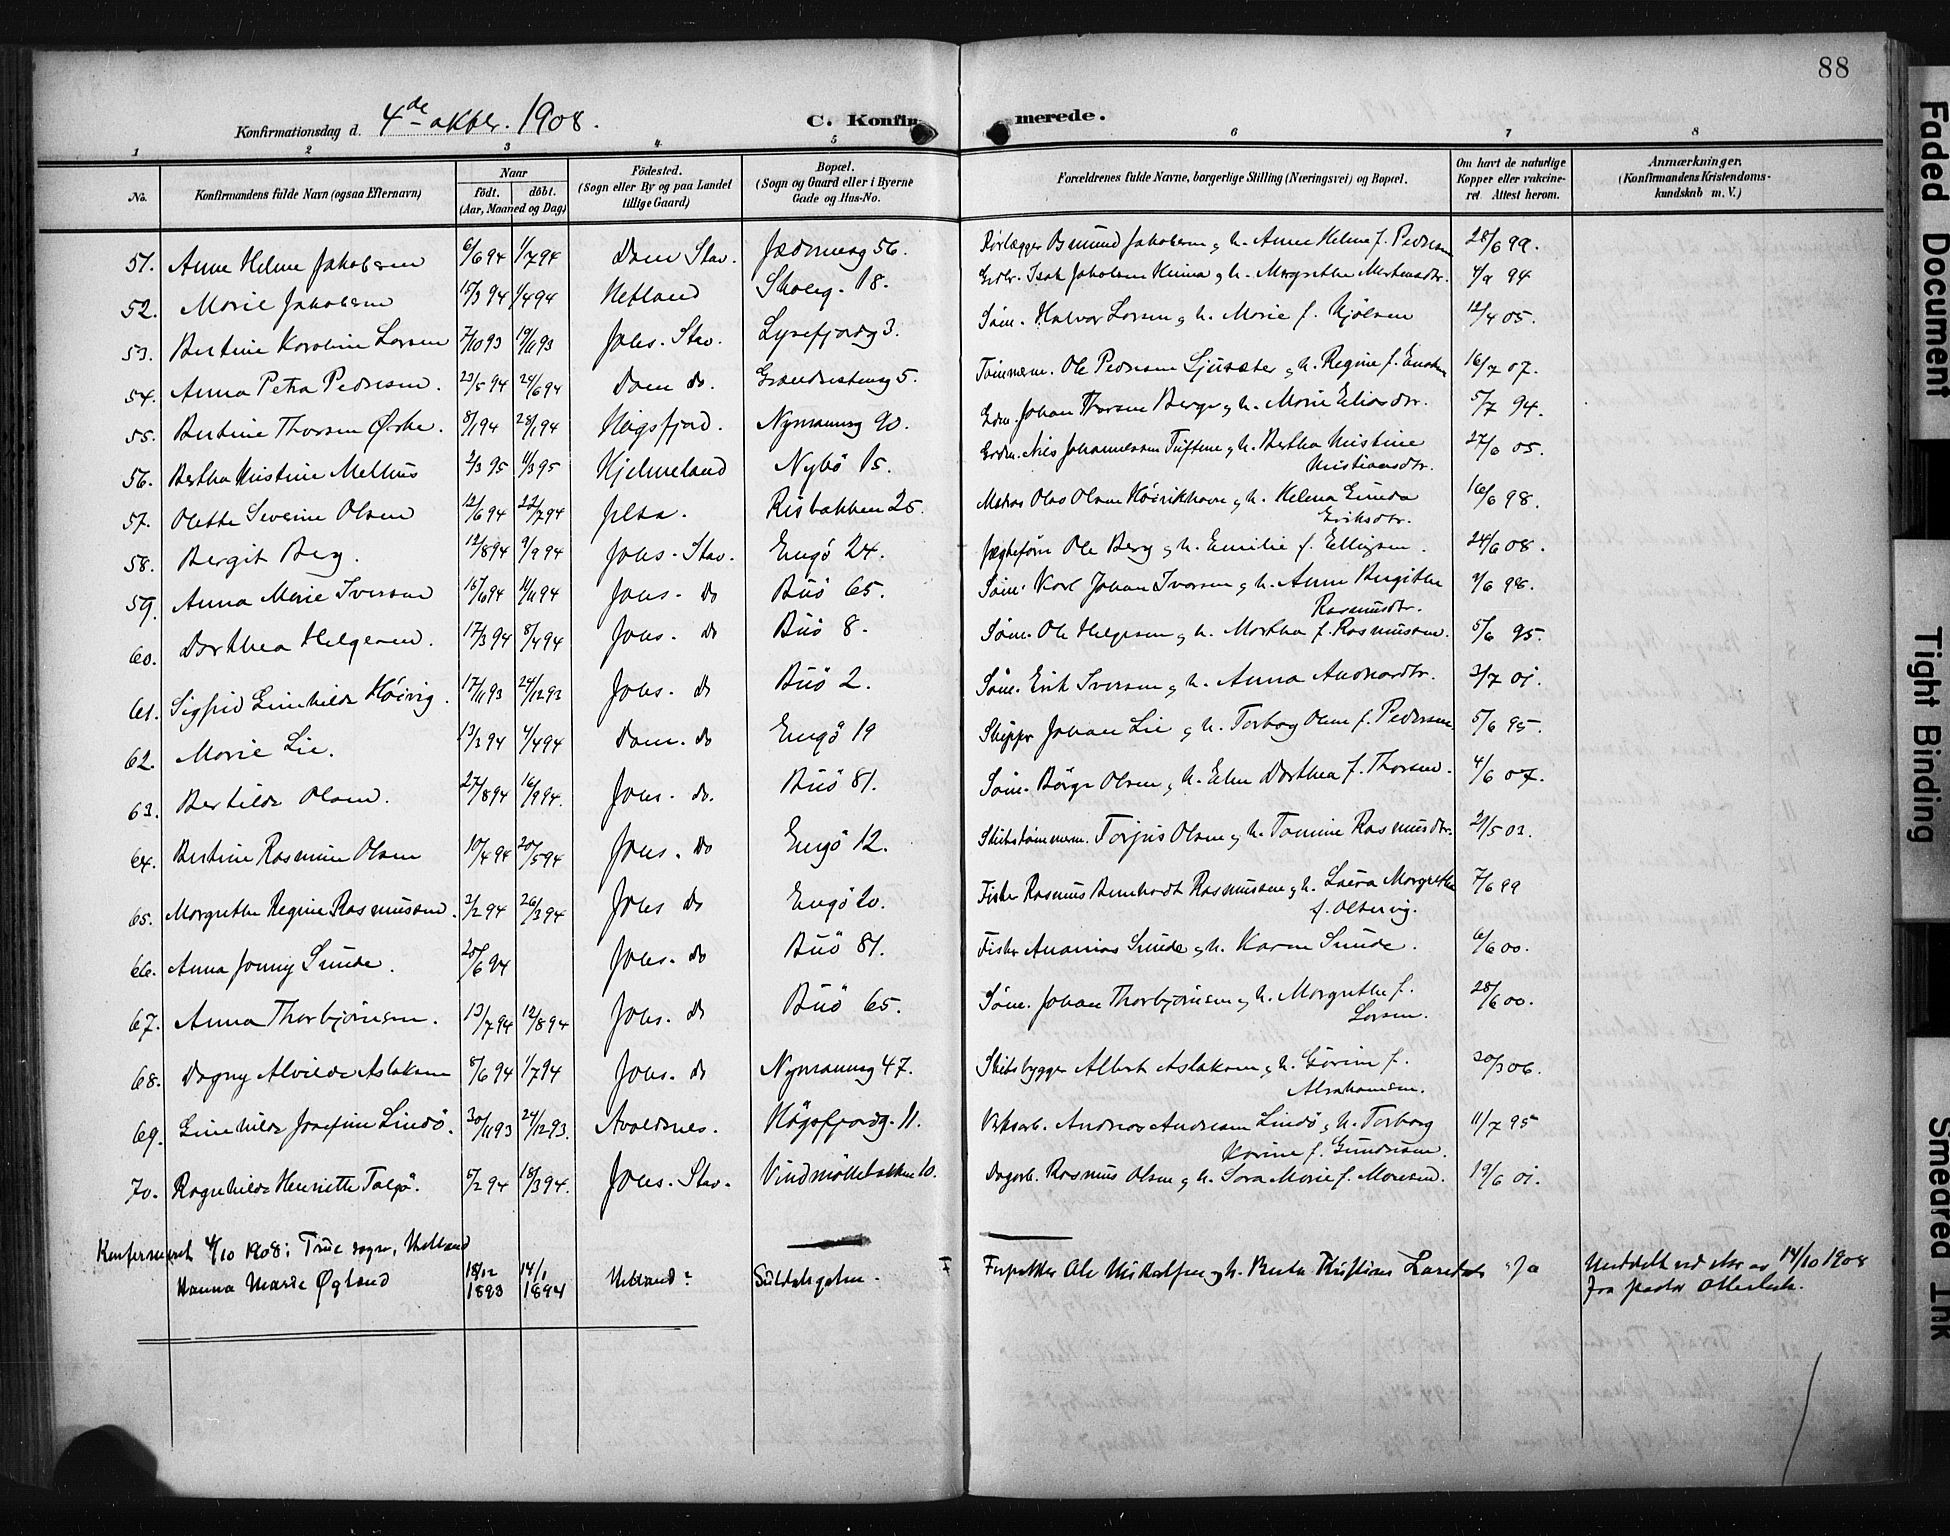 88
Konfirmationsdag d. 4de oktbr. 1908.
C. Konfir merede.
1 2 3 4 5 6 7 8
No.
Konfirmandens fulde Navn (ogsaa Efternavn)
Naar
födt. döbt.
(Aar, Maaned og Dag)
Födested.
(Sogn eller By og paa Landet
tillige Gaard)
Bopæl.
(Sogn og Gaard eller i Byerne
Gade og Hus-No.
Forældrenes fulde Navne, borgerlige Stilling (Næringsvei) og Bopæl.
Om havt de naturlige
Kopper eller vakcine-
ret Attest herom.
Anmærkninger,
(Konfirmandens Kristendoms-
kundskab m. V.)
51. Anne Helene Jakobsen 6/6 94 1/7 94 Dom Stav. 56. Rørlægger Jakobsen g h. Anne Helene f. Pedersen 28/6 99.
52. Marie Jakobsen 15/3 94 1/4 94 Hetland Skoleg. 18. Isak Jakobsen g h. Margrethe 4/9 94
53. Bertine Karoline Larsen 7/10 93 19/11 93 Johs. Stav. Lysefjordg 3. Søm. Halvor Larsen g h. Marie f. Kjölsen 12/4 05.
54. Anna Petra Pedersen. 23/5 94 24/6 94 Dom do. 5. Tömmerm. Ole Pedersen g h. Regine f. 16/7 07.
55. Bertine Thorsen Øske. 8/1 94 28/1 94 Høgsfjord. Nymansv 90. Johan Thorsen Berge g h. Marie Eliasdtr. 5/7 94.
56. Bertha Kristine Melhus 2/3 95 11/3 95 Hjelmeland Nybö 15. Nils Johannessen Tuftene g h. Bertha Kristine
Kristiansdtr. 27/6 05.
57. Olette Severine Olsen 12/6 94 22/7 94 Jelsa. Risbakken 25. Matros Olaus Olsen g h. Helena Gunda
Eriksdtr. 16/6 98.
58. Bergit Berg. 12/8 94 9/9 94 Johs. Stav. Engö 24. Jægtefører Ole Berg g h. Emilie f. Ellingsen. 24/6 08.
59. Anna Marie Iversen 15/6 94 11/11 94 Johs. do Buö 65. Søm. Karl Johan Iversen g h. Anne Birgithe
Rasmusdtr. 9/6 98.
60. Dorthea Helgesen. 17/3 94 8/4 94 Johs. do Buö 8. Søm. Ole Helgesen g h. Martha f. Rasmussen. 5/6 95.
61. Sigfrid Gunhilda Höivig. 17/11 93 24/12 93 Johs. do Buö 2. Søm. Erik Iversen g h. Anna 3/7 01.
62. Marie Lie. 13/3 94 4/4 94 Dom. do Engö 19 Skipper Johan Lie g h. Torborg Olene f. Pedersen 5/6 95.
63. Bertilde Olsen. 27/8 94 16/9 94. Johs. do. Buö 81. Søm. Börge Olsen g h. Elen Dorthea f. Thorsen. 4/6 07.
64. Bertine Rasmine Olsen 10/4 94 20/5 94 Johs. do Engö 12. Skibstömmerm. Torjus Olsen g h. Tomine Rasmusdtr. 2/5 03.
65. Margrethe Regine Rasmussen. 2/2 94 26/3 94 Johs do Engö 20. Fisker Rasmus Bernhardt Rasmussen g h. Laura Margrethe
f. Oltervig. 7/6 99
66. Anna Jonny Sunde. 25/6 94 Johs. do Buö 81. Fisker Ananias Sunde g h. Karen Sunde. 6/6 00.
67. Anna Thorbjörnsen. 13/7 94 12/8 94 Johs. do Buö 65. Søm. Johan Thorbjörnsen g h. Margrethe f.
Larsen. 28/6 00.
68. Dagny Alvilde Aslaksen 8/6 94 1/7 94 Johs. do Nymansv 47. Skibsbygger Albert Aslaksen g h. Gurine f.
Abrahamsen. 20/3 06.
69. Gunhilde Josefine Lindö. 30/11 93 24/12 93. Avaldsnes. Høgsfjordg. 11. Andreas Andresen Lindö g h. Torborg
Karine f. Gundersen. 11/7 95
70. Ragnhilda Henriette Talgö. 5/2 94 18/3 94. Johs. Stav. Vindmöllebakken 10. Dagarb. Rasmus Olsen g h. Sara Marie f. 19/6 01.
Konfirmeret 4/10 1908 i Hetland
Hanna Marie Øglænd 18/12 1893 14/1 1894 Hetland? Suldalsgaten. Ole g h. Berta Kristians ja Meddelt ved skr. av 14/10 1908
fra pastor
Faded Document
Tight Binding
Smeared Ink